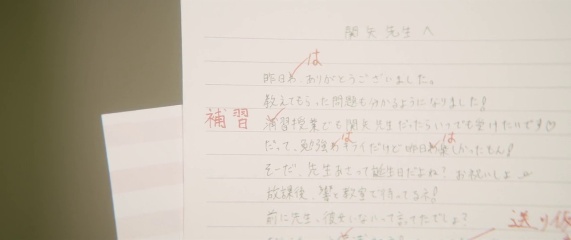 関矢先生へ
は
昨日わ ありがとうございました。
教えてもらった問題も分かるようになりました!
補習 講習授業でも関矢先生だったらいつでも受けたいです♡
は は
だって、勉強わキライだけど昨日わ楽しかったもん!
そーだ、先生あさって誕生日だよね? お祝いしよ
放課後、響と教室で待ってるネ!
前に先生、彼女いないって言ってたでしょ?
送り仮